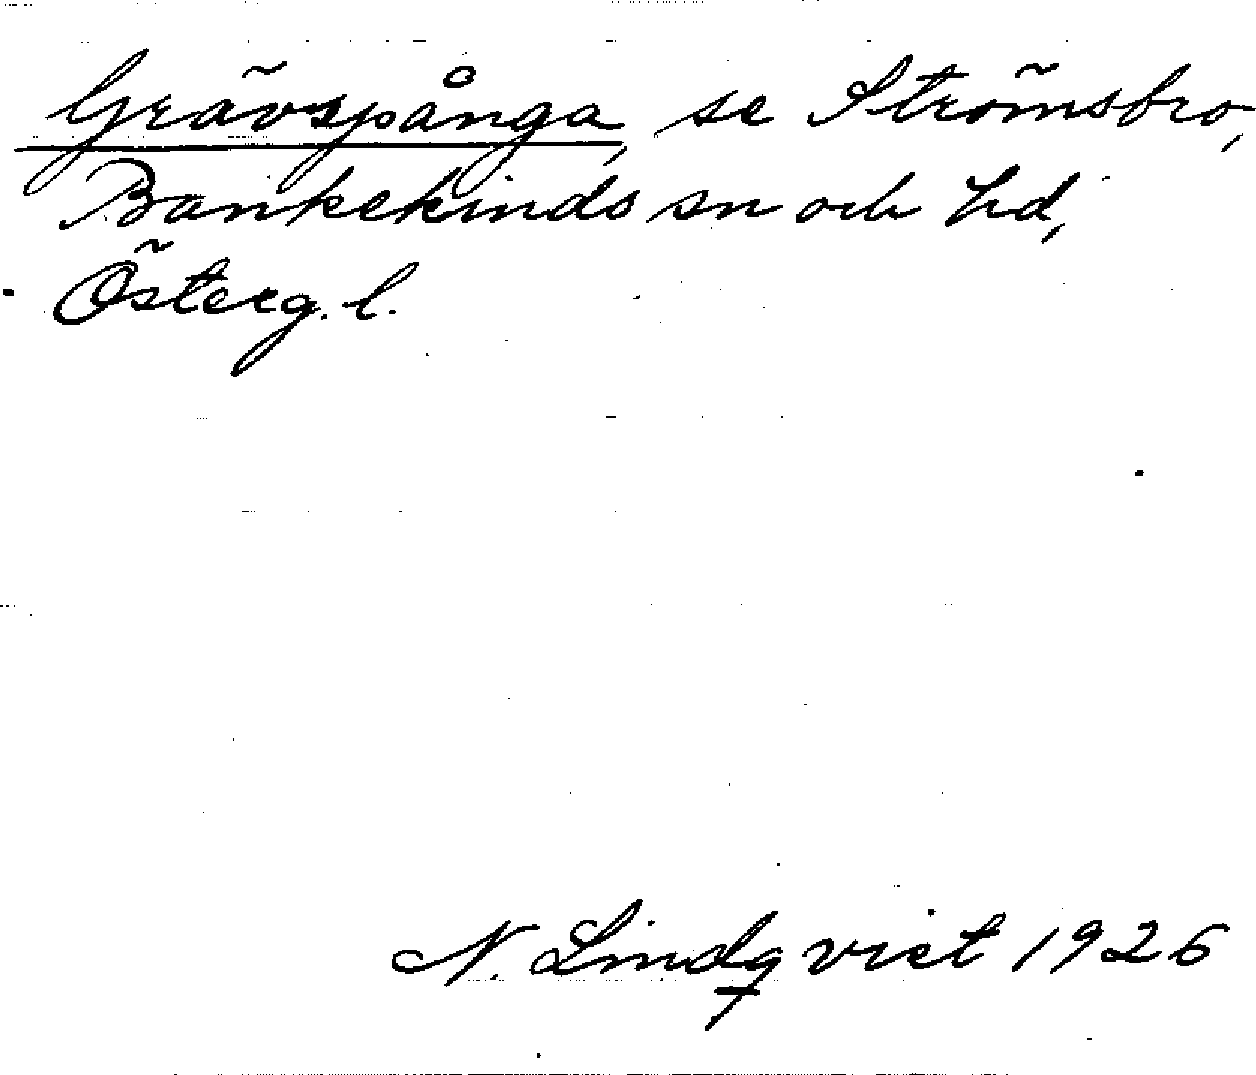 Grävspånga, se Strömsbro,
Bankekinds sn och hd,
Österg. l.
N. Lindqvist 1926